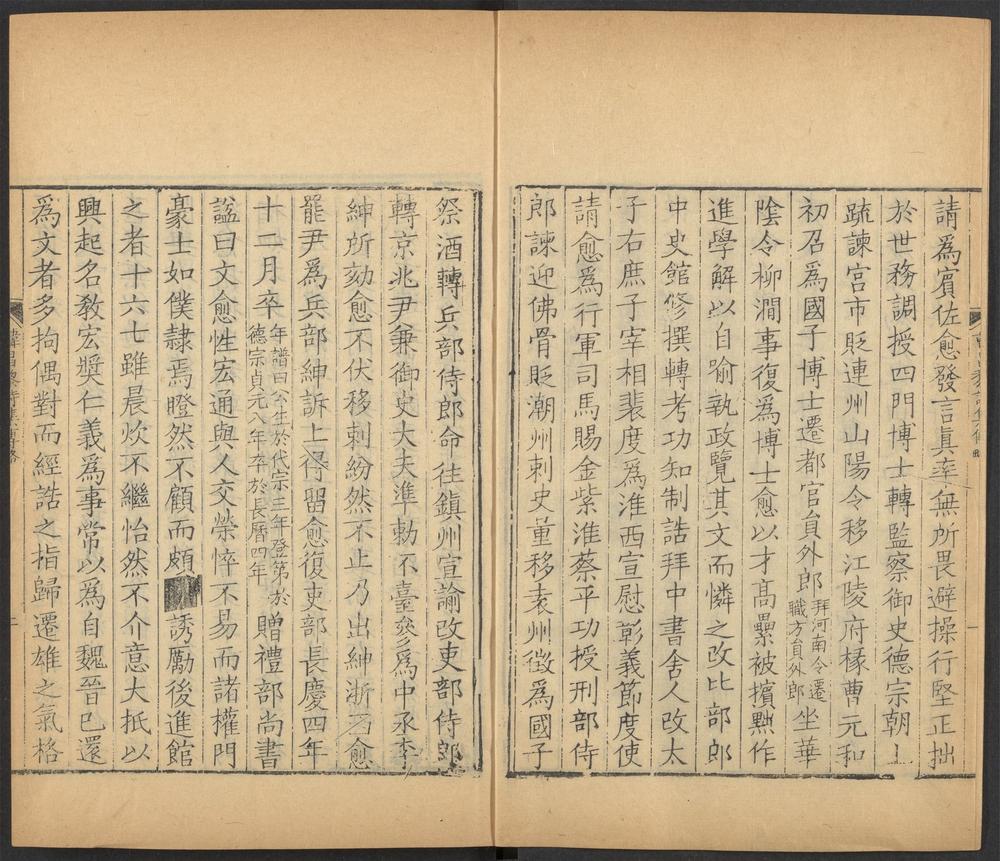 請為賓佐愈發言真率無所畏避操行堅正拙
於世務調授四門博士轉監察御史德宗朝上
疏諫宮市貶連州山陽令移江陵府椽曹元和
初召為國子博士遷都官員外郎拜河南令遷職方員外郎坐華
陰令柳澗事復為博士愈以才高累被擯黜作
進學解以自喻執政覽其文而憐之改比部郎
中史館修撰轉考功知制誥拜中書舍人改太
子右庶子宰相裴度為淮西宣慰彰義節度使
請愈為行軍司馬賜金紫淮蔡平功授刑部侍
郎諫迎佛骨貶潮州刺史量移袁州徵為國子
祭酒轉兵部侍郎命往鎮州宣諭改吏部侍郎
轉京兆尹兼御史大夫準勅不臺參為中承李
紳所劾愈不伏移刺紛然不止乃出紳浙西愈
罷尹為兵部紳訴上得留愈復吏部長慶四年
十二月卒年譜曰公生於代宗三年登第於德宗貞元八年卒於長曆四年贈禮部尚書
諡曰文愈性宏通與人交榮悴不易而諸權門
豪士如僕隸焉瞪然不顧而頗誘勵後進館
之者十六七雖晨炊不繼怡然不介意大抵以
興起名教宏奬仁義為事常以為自魏晉已還
為文者多拘偶對而經誥之指歸遷雄之氣格